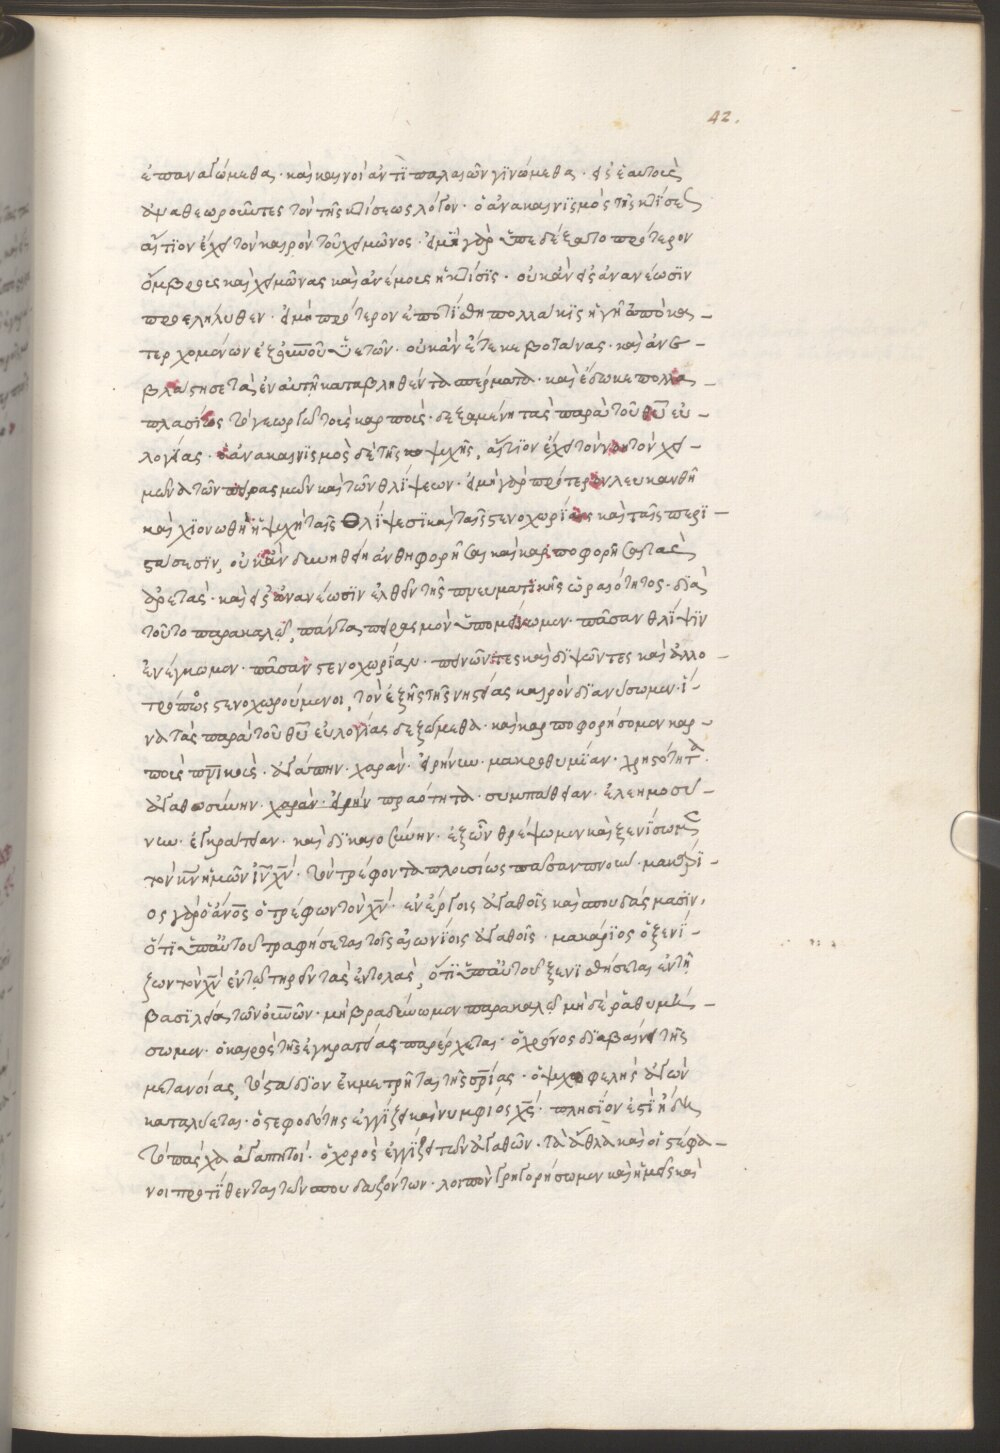 42.
ἐπαναγώμεθα· καὶ καινοὶ ἀντὶ παλαιῶν γϊνώμεθα· εἰς ἑαυτοὺς
ἀναθεωροῦντες τὸν τῆς κτίσεως λόγον· ὁ ἀνακαινϊσμὸς τῆς κτίσεως
αἴτϊον ἔχει τὸν καιρὸν τοῦ χειμῶνος· εἰ μὴ γὰρ ὑπεδέξατο πρότερον
ὄμβρους καὶ χειμῶνας καὶ ἀνέμους ἡ κτίσϊς· οὐκ ἂν εἰς ἀνανέωσϊν
προεληλύθεν· εἰ μὴ πρότερον ἐποτίσθη πολλάκϊς ἡ γῆ ἀπὸ κα–
τερχομένων ἐξ οὐνοῦ ὑετῶν· οὐκ ἂν ἔτεκε βοτάνας· καὶ ἀν
βλάστησε τὰ ἐν αὐτῇ καταβληθέντα σπέρματα· καὶ ἔδωκε πολλα–
πλασίως τῷ γεωργῷ τοὺς καρποὺς· δεξαμένη τὰς παρὰ τοῦ θυ εὐ–
λογίας· ὁ ἀνακαινϊσμὸς δὲ τῆς ψυχῆς, αἴτϊον ἔχει τὸν νοητὸν χει–
μῶνα τῶν πειρασμῶν καὶ τῶν θλίψεων· εἰ μὴ γὰρ πρότερον λευκανθῆ
καὶ χϊονωθῆ ἡ ψυχὴ ταῖς θλίψεσϊ καὶ ταῖς στενοχωρίαις καὶ ταῖς περϊ–
στάσεσϊν, οὐκ ἂν δυνηθείη ἀνθηφορῆσαι καὶ καρποφορῆσαι τὰς
ἀρετὰς· καὶ εἰς ἀνανέωσϊν ἐλθεῖν τῆς πνευματϊκῆς ὡραιότητος· δϊὰ
τοῦτο παρακαλῶ, πάντας πειρασμὸν ὑπομείνωμεν· πᾶσαν θλίψϊν
ἐνέγκωμεν· πᾶσαν στενοχωρίαν· πεινῶντες καὶ δϊψῶντες καὶ ἄλλο–
τρόπως στενοχωρούμενοι, τὸν ἑξῆς τῆς νηστείας καιρὸν δϊανύσωμεν· ἵ–
να τὰς παρὰ τοῦ θυ εὐλογίας δεξώμεθα· καὶ καρποφορήσομεν καρ–
ποὺς πνϊκοὺς· ἀγάπην· χαράν· εἰρήνην· μακροθυμίαν· χρηστότητα·
ἀγαθοσύνην· χαράν· εἰρήν πραότητα· συμπάθειαν· ἐλεημοσύ–
νην· ἐγκράτειαν· καὶ δϊκαιοσύνην· ἐξ ὧν θρέψωμεν καὶ ξενίσωμεν
τὸν κν ἡμῶν ιν χν· τὸν τρέφοντα πλουσίως πᾶσαν πνοήν· μακάρϊ–
ος γὰρ ὁ ἄνος ὁ τρέφων τὸν χν· ἐν ἔργοις ἀγαθοῖς καὶ σπουδάσμασϊν,
ὅτϊ ὑπ' αὐτοῦ τραφήσεται τοῖς αἰωνίοις ἀγαθοῖς· μακάρϊος ὁ ξενί–
ζων τὸν χν ἐν τῷ τηρεῖν τὰς ἐντολὰς, ὅτϊ ὑπ' αὐτοῦ ξενϊσθήσεται ἐν τῇ
βασϊλείᾳ τῶν οὐνῶν· μὴ βραδύνωμεν παρακαλῶ μὴ δὲ ῥαθυμή–
σωμεν· ὁ καιρὸς τῆς ἐγκρατείας παρέρχεται· ὁ χρόνος δϊαβαίνει τῆς
μετανοίας, τὸ στάδϊον ἐκμετρῆται τῆς σρίας· ὁ ψυχωφελὴς ἀγὼν
καταλύεται· ὁ στεφοδότης ἐγγίζει καὶ νυμφιός χς· πλησίον ἐστὶ ἤδη
τὸ πάσχα ἀγαπητοί· ὁ χορὸς ἐγγίζει τῶν ἀγαθῶν· τὰ ἆθλα καὶ οἱ στέφα–
νοι προτίθενται τῶν σπουδαζόντων· λοιπὸν γρηγορήσωμεν καὶ ἡμεῖς καὶ